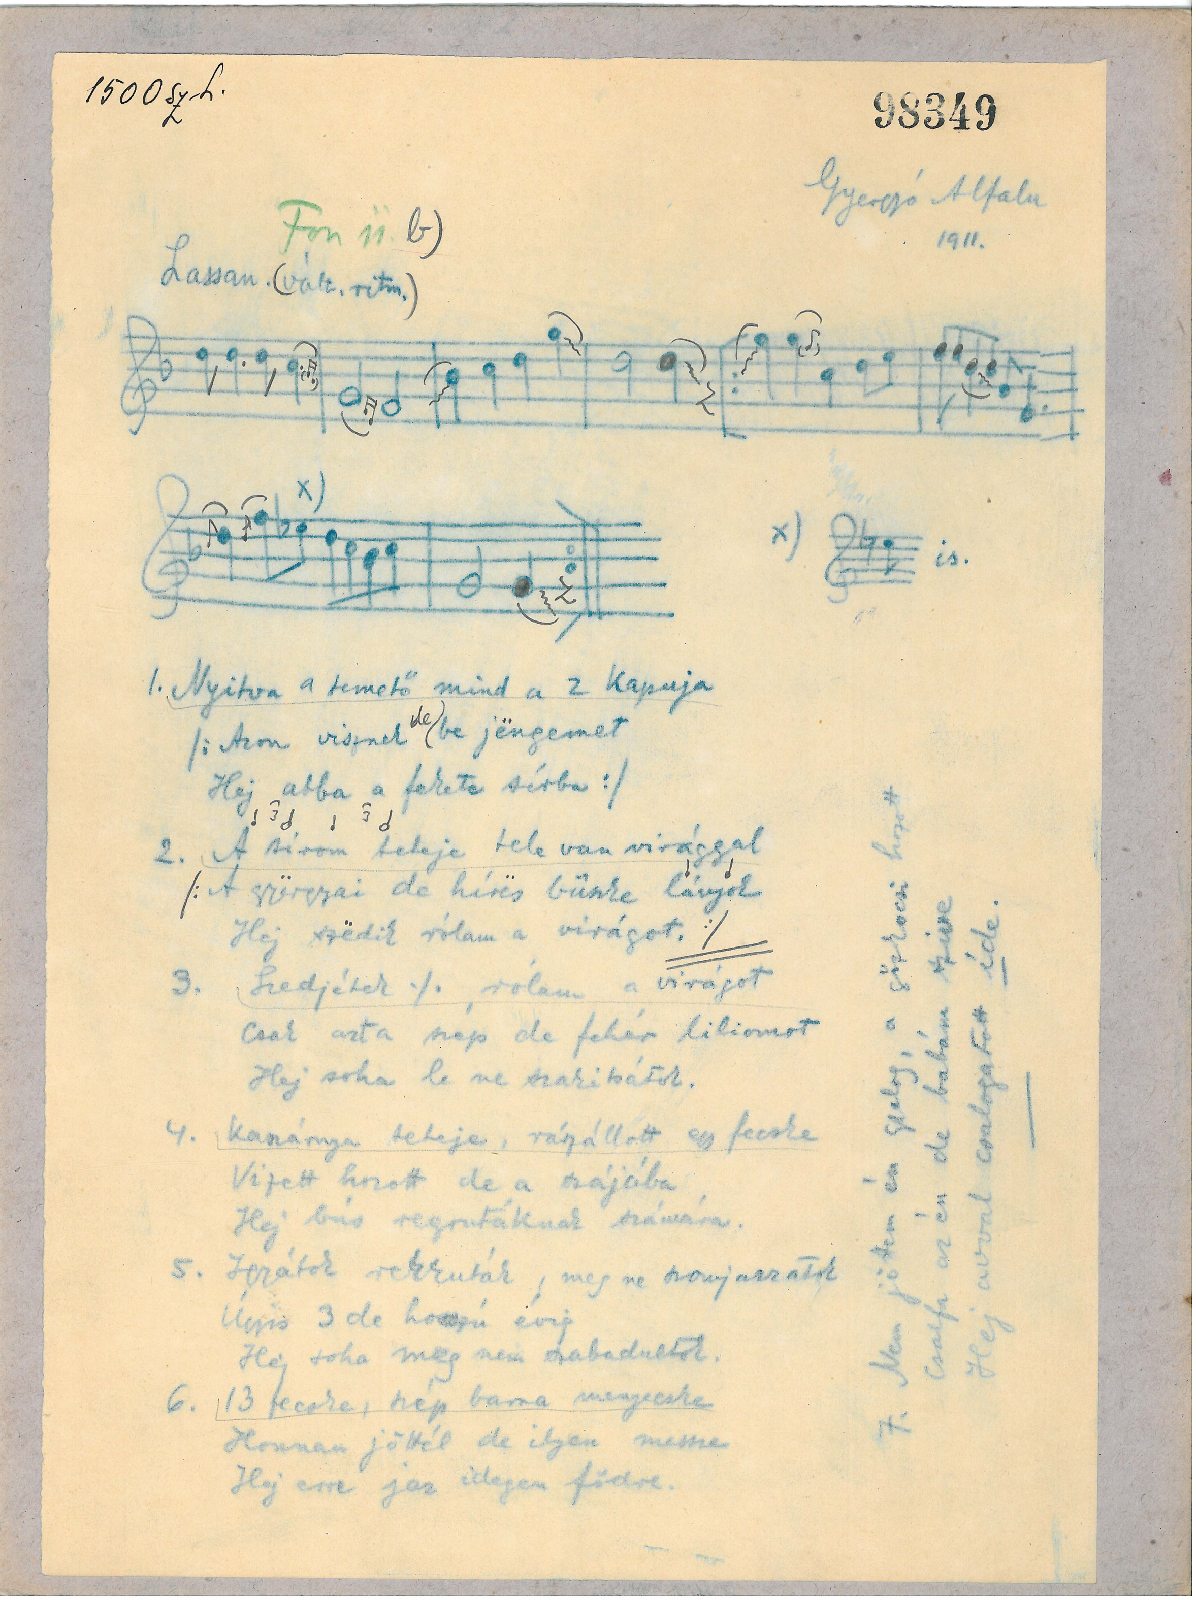 1500 sz. h.
98349
Gyergyó Alfalu
1911.
Fon II. b)
Lassan. (vált. ritm.)
x)
x) is.
1. Nyitva a temető mind a 2 kapuja
/: Azon visznek de be jëngemet
Hej abba a fekete sírba :/
2. A sirom teteje tele van virággal
/: A györgyai de híres büszke lányok
Hej szëdik rólam a virágot. :/
3. Szedjétek ./. rólam a virágot
Csak azt a szép de fehér liliomot
Hej soha le ne szakitsátok.
4. Kaszárnya teteje, rászállott egy fecske
Vizett hozott de a szájába
Hej bús regrutáknak számára.
5. Igyátok rekruták, meg ne szomjazzatok
Úgyis 3 de hosszú évig
Hej soha meg nem szabadultok.
6. 13 fecske, szép barna menyecske
Honnan jöttél de ilyen messze
Hej erre jaz idegen födre.
7. Nem jöttem én gyalog, a gőzkocsi hozott
Csalfa az én de babám szive
Hej avval csalogatott ide.